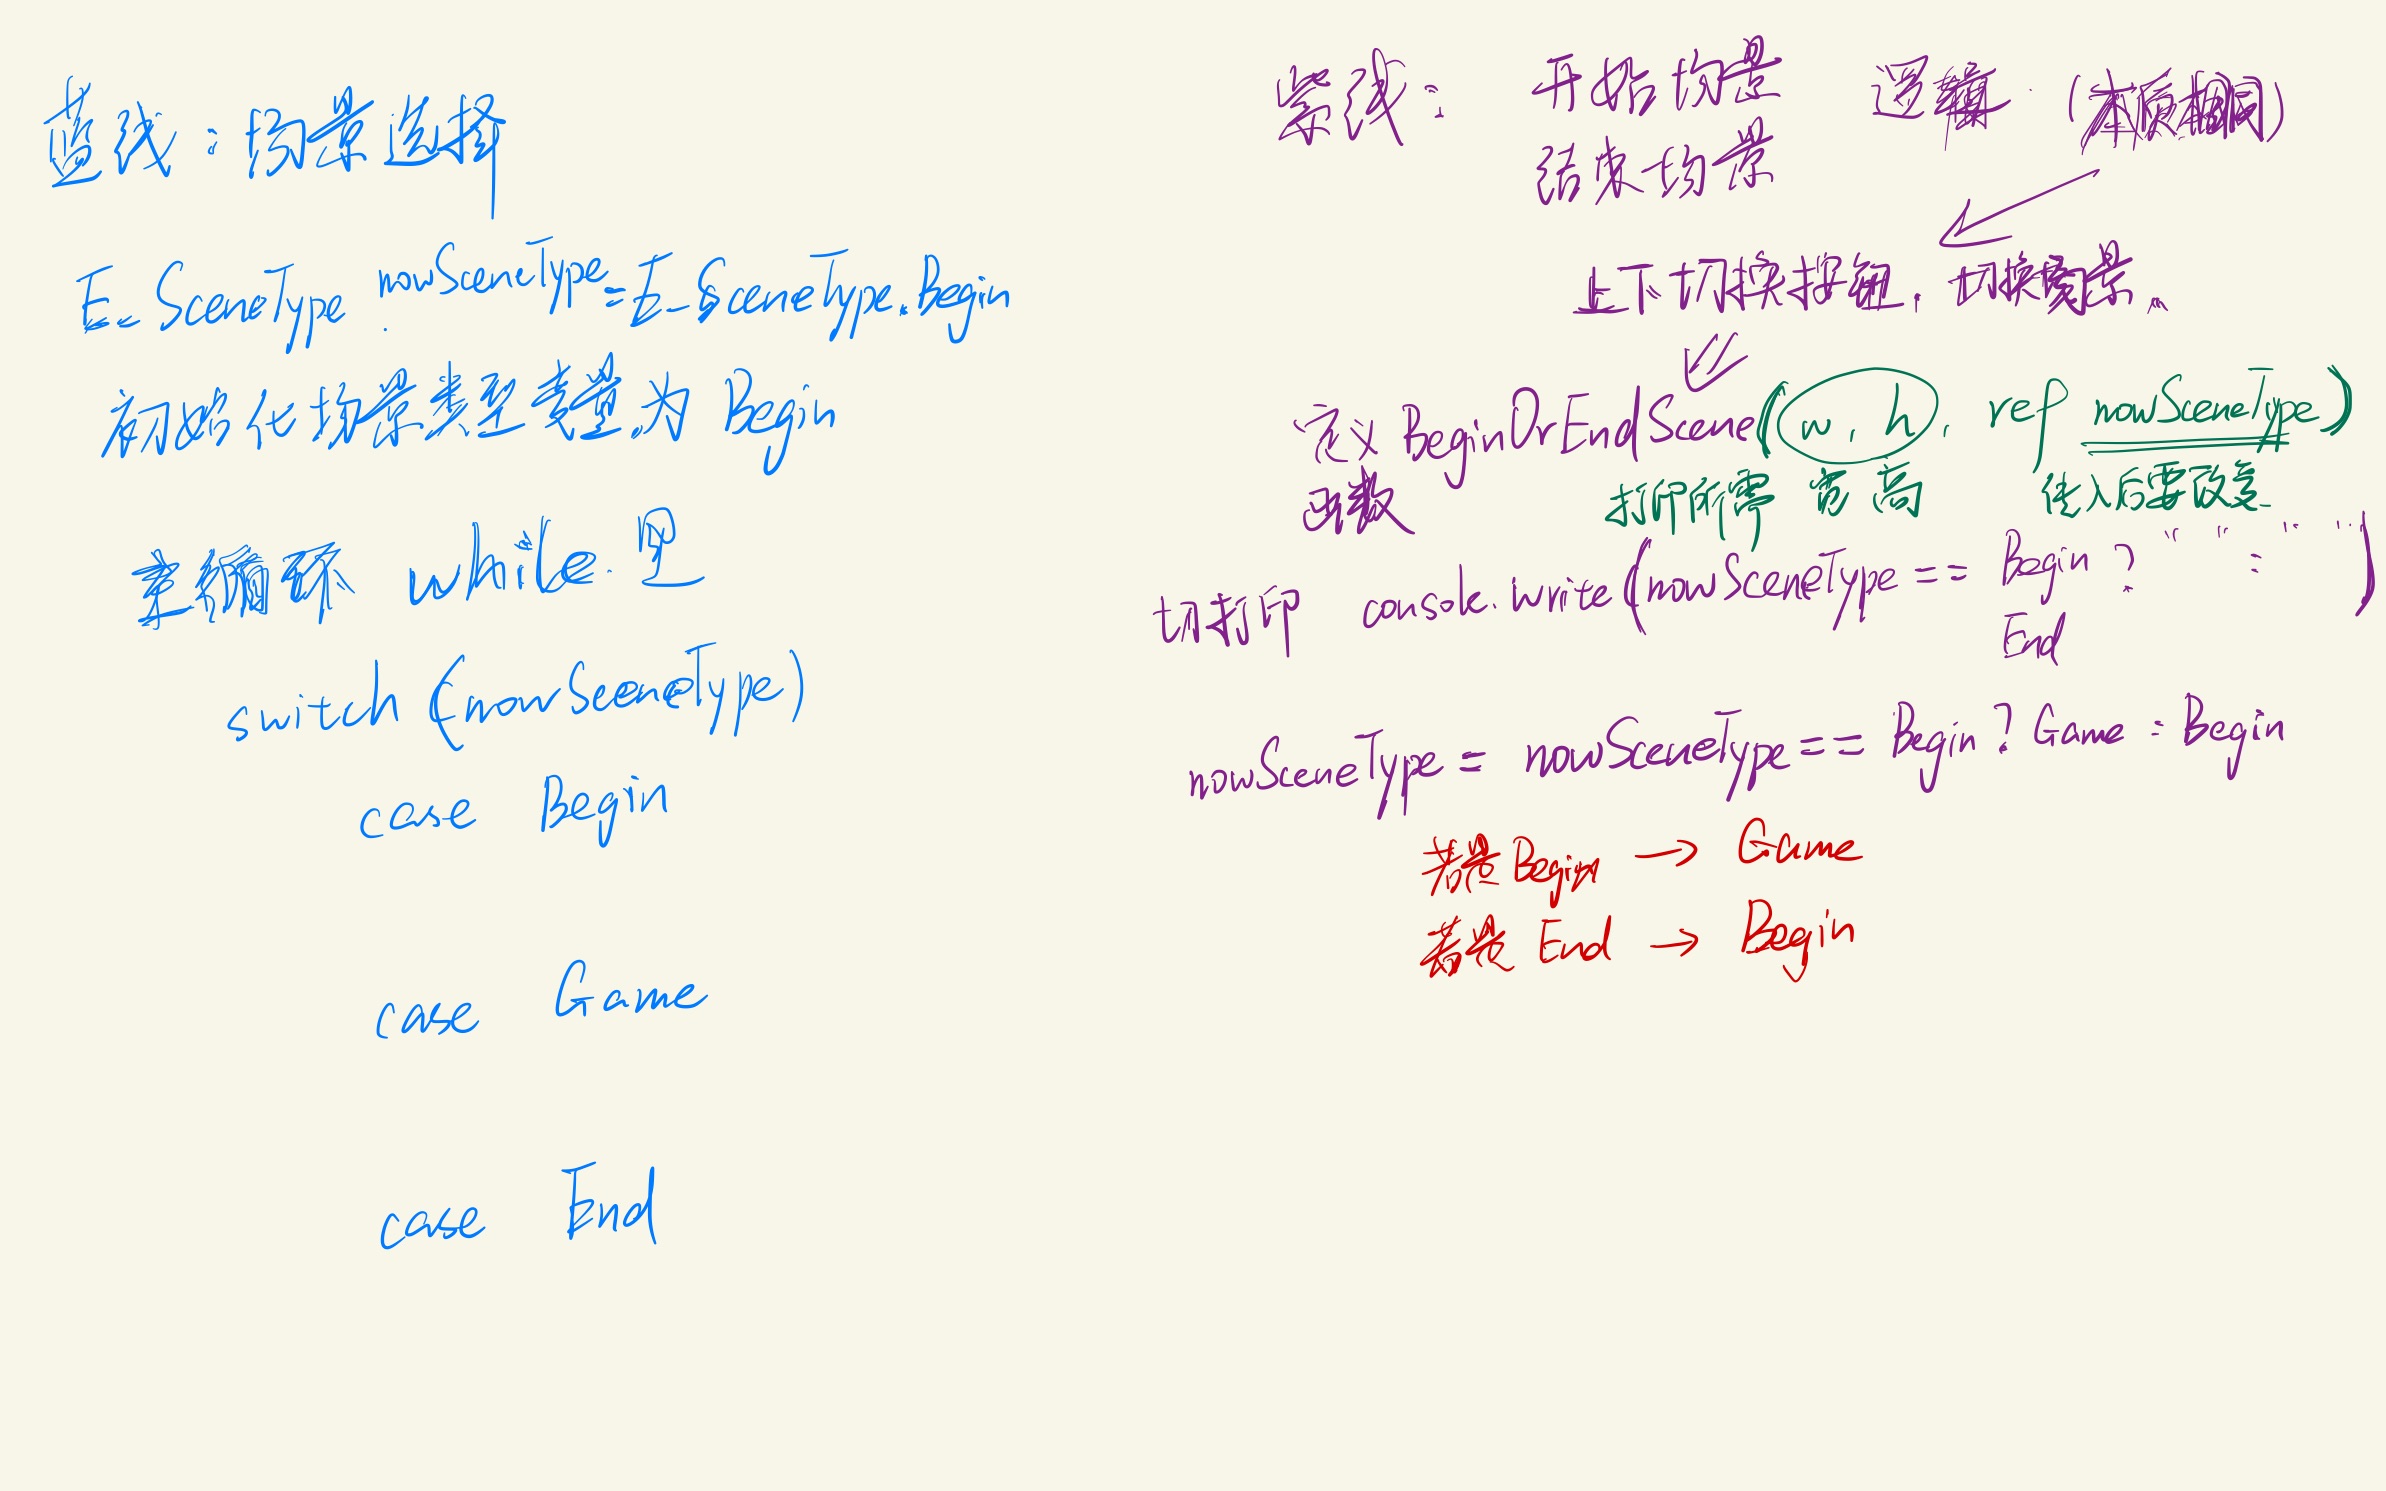 蓝线：场景选择
E_SceneType nowSceneType=E_SceneType.Begin
初始化场景类型变量为 Begin
主循环 while 里
switch (nowSceneType)
case Begin
case Game
case End
紫线： 开始场景 逻辑 (本质相同)
结束场景
上下切换按钮，切换场景。
定义 BeginOrEndScene(w, h, ref nowSceneType)
函数 打印所需 宽 高 传入后要改变
切打印 console.write(nowSceneType == Begin ? " " : " ")
End
nowSceneType = nowSceneType == Begin ? Game : Begin
若是 Begin → Game
若是 End → Begin